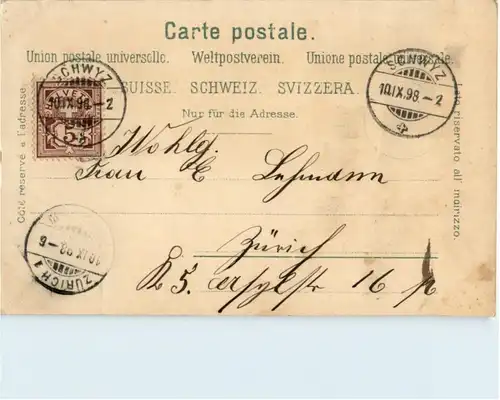 Carte postale.
Union postale universelle. Weltpostverein. Unione postale universale.
SCHWYZ
10.IX.98.-2
SCHWYZ
10.IX.98.-2
SUISSE. SCHWEIZ. SVIZZERA.
Nur für die Adresse.
Côté réservé à l'adresse.
Lato riservato all' indirizzo.
5
Wohlg.
Frau E Lehmann
Zürich
K 5. Asylstr 16
10.IX.98.-6
ZÜRICH 1